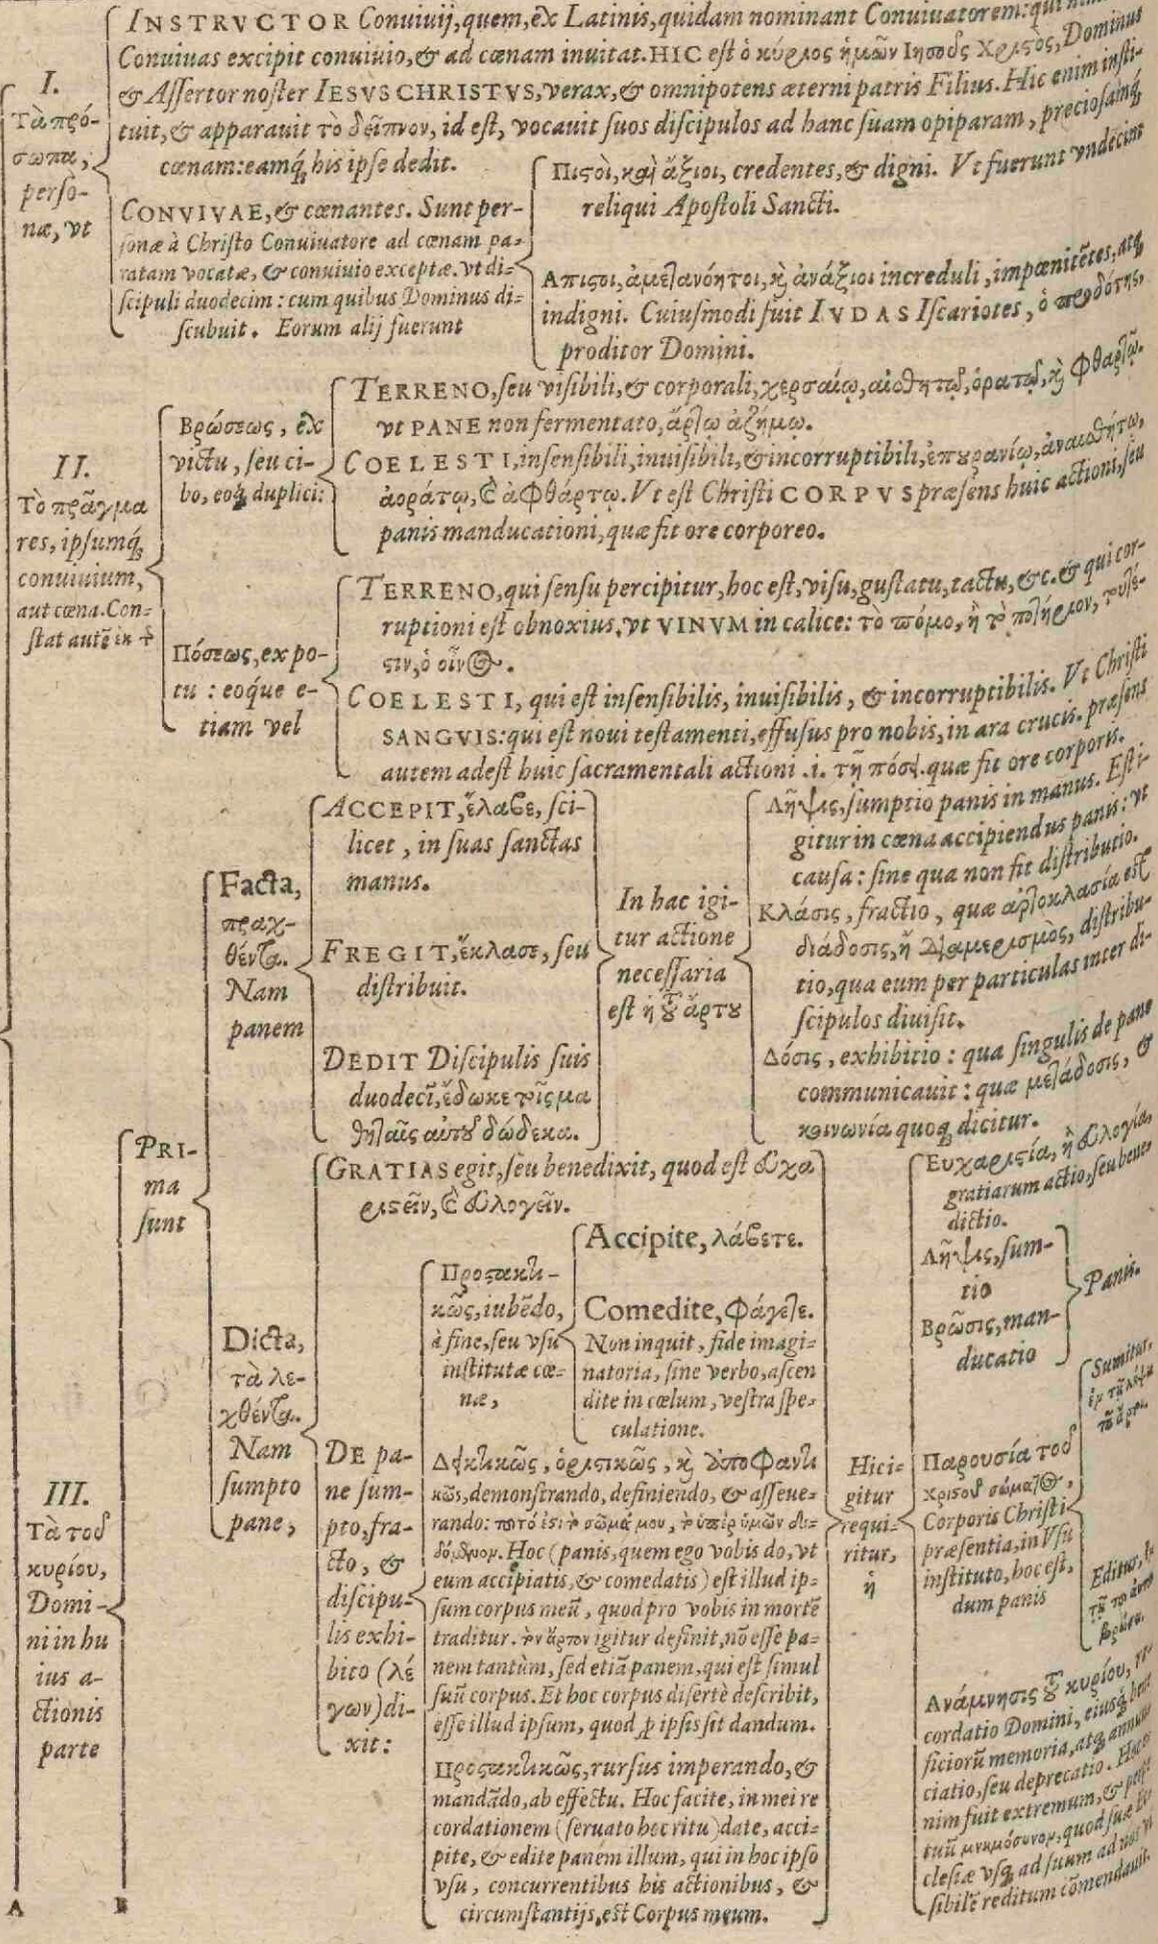 I.
Τὰ πρό-
σωπα,
perso-
næ, vt
INSTRVCTOR Conuiuij, quem, ex Latinis, quidam nominant Conuiuatorem: qui
Conuiuas excipit conuiuio, & ad cœnam inuitat. HIC est ὁ κύριος ἡμῶν Ιησοῦς Χριστὸς, Dominus
& Assertor noster IESVS CHRISTVS, verax, & omnipotens æterni patris Filius. Hic enim insti-
tuit, & apparauit τὸ δεῖπνον, id est, vocauit suos discipulos ad hanc suam opiparam, preciosamq́;
cœnam: eamq́; his ipse dedit.
CONVIVAE, & cœnantes. Sunt per-
sonæ à Christo Conuiuatore ad cœnam pa-
ratam vocatæ, & conuiuio exceptæ. vt di-
scipuli duodecim: cum quibus Dominus di-
scubuit. Eorum alij fuerunt
Πιστοὶ, καὶ ἄξιοι, credentes, & digni. Vt fuerunt vndecim
reliqui Apostoli Sancti.
Απιστοι, ἀμετανόητοι, κὶ ἀνάξιοι increduli, impœnitẽtes, atq;
indigni. Cuiusmodi fuit IVDAS Iscariotes, ὁ προδότης,
proditor Domini.
II.
Τὸ πρᾶγμα
res, ipsumq́;
conuiuium,
aut cœna. Con-
stat autẽ ἐκ τ
Βρώσεως, ex
victu, seu ci-
bo, eoq́; duplici:
TERRENO, seu visibili, & corporali, χερσαίῳ, αἰσθητῷ, ὁρατῷ, κὶ φθαρτῷ.
vt PANE non fermentato, ἄρτῳ ἀζήμῳ.
COELESTI, insensibili, inuisibili, & incorruptibili, ἐπουρανίῳ, ἀναισθήτῳ,
ἀοράτῳ, & ἀφθάρτῳ. Vt est Christi CORPVS præsens huic actioni, seu
panis manducationi, quæ fit ore corporeo.
Πόσεως, ex po-
tu: eoque e-
tiam vel
TERRENO, qui sensu percipitur, hoc est, visu, gustatu, tactu, &c. & qui cor-
ruptioni est obnoxius, vt VINVM in calice: τὸ πόμο, ἢ τὸ ποτήριον, τουτέ-
στιν, ὁ οἶνος.
COELESTI, qui est insensibilis, inuisibilis, & incorruptibilis. Vt Christi
SANGVIS: qui est noui testamenti, effusus pro nobis, in ara crucis. præsens
autem adest huic sacramentali actioni .i. τῇ πόσει. quæ fit ore corporis.
III.
Τὰ τοῦ
κυρίου,
Domi-
ni in hu
ius a-
ctionis
parte
PRI-
ma
sunt
Facta,
πραχ-
θέντα.
Nam
panem
ACCEPIT, ἔλαβε, sci-
licet, in suas sanctas
manus.
FREGIT, ἔκλασε, seu
distribuit.
DEDIT Discipulis suis
duodecĩ, ἔδωκε τοῖς μα
θηταῖς αὐτοῦ δώδεκα.
In hac igi-
tur actione
necessaria
est ἡ τοῦ ἄρτου
Λῆψις, sumptio panis in manus. Est i-
gitur in cœna accipiendus panis: vt
causa: sine qua non fit distributio.
Κλάσις, fractio, quæ ἀρτοκλασία est
διάδοσις, ἢ διαμερισμὸς, distribu-
tio, qua eum per particulas inter di-
scipulos diuisit.
Δόσις, exhibitio: qua singulis de pane
communicauit: quæ μετάδοσις, &
κοινωνία quoq; dicitur.
Dicta,
τὰ λε-
χθέντα.
Nam
sumpto
pane,
GRATIAS egit, seu benedixit, quod est εὐχα
ριστεῖν, & εὐλογεῖν.
DE pa-
ne sum-
pto, fra-
cto, &
discipu-
lis exhi-
bito (λέ
γων) di-
xit:
Προστακτι-
κῶς, iubẽdo,
à fine, seu vsu
institutæ cœ-
næ,
Accipite, λάβετε.
Comedite, φάγετε.
Non inquit, fide imagi-
natoria, sine verbo, ascen
dite in cœlum, vestra spe-
culatione.
Δεικτικῶς, ὁριστικῶς, κὶ ἀποφαντι
κῶς, demonstrando, definiendo, & asseue-
rando: τοῦτό ἐστι τὸ σῶμά μου, τὸ ὑπὲρ ὑμῶν δι-
δόμενον. Hoc (panis, quem ego vobis do, vt
eum accipiatis, & comedatis) est illud ip-
sum corpus meũ, quod pro vobis in mortẽ
traditur. τὸν ἄρτον igitur definit, nõ esse pa-
nem tantùm, sed etiã panem, qui est simul
suũ corpus. Et hoc corpus disertè describit,
esse illud ipsum, quod ꝓ ipsis sit dandum.
Προστακτικῶς, rursus imperando, &
mandãdo, ab effectu. Hoc facite, in mei re
cordationem (seruato hoc ritu) date, acci-
pite, & edite panem illum, qui in hoc ipso
vsu, concurrentibus his actionibus, &
circumstantijs, est Corpus meum.
Hic i-
gitur
requi-
ritur,
ἡ
Ευχαριστία, ἢ εὐλογία,
gratiarum actio, seu bene-
dictio.
Λῆψις, sum-
tio
Βρῶσις, man-
ducatio
Panis.
Παρουσία τοῦ
χριστοῦ σώματος,
Corporis Christi
præsentia, in Vsu
instituto, hoc est,
dum panis
Sumitur,
ἐν τῇ λήψει
τοῦ ἄρτου.
Editur,
βρώσει.
Ανάμνησις τοῦ κυρίου,
cordatio Domini, eiusq́; bene
ficiorũ memoria, atq; annun
ciatio, seu deprecatio. Hoc e-
nim fuit extremum, & perpe
tuũ μνημόσυνον, quod suæ Ec
clesiæ vsq; ad suum ad nos vi
sibilẽ reditum cõmendauit.
A
B